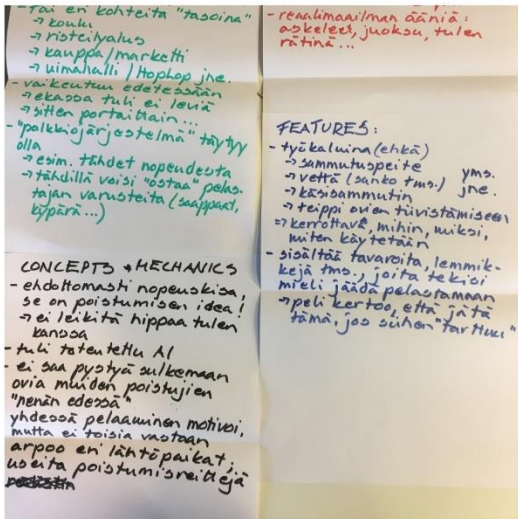 - tai eri kohteita "tasoina"
→ koulu
→ risteilyalus
→ kauppa/marketti
→ uimahalli / Hophop jne.
- vaikeutuu edetessään
→ ekassa tuli ei leviä
→ sitten portaittain...
- "palkkiojärjestelmä" täytyy
olla
→ esim. tähdet nopeudesta
→ tähdillä voisi "ostaa" pelas-
tajan varusteita (saappaat,
kypärä...)
CONCEPTS & MECHANICS
- ehdottomasti nopeuskisa,
se on poistumisen idea!
→ ei leikitä hippaa tulen
kanssa
- tuli toteutettu AI
- ei saa pystyä sulkemaan
ovia muiden poistujien
"nenän edessä"
yhdessä pelaaminen motivoi,
mutta ei toisia vastaan
arpoo eri lähtöpaikat,
useita poistumisreittejä
- reaalimaailman ääniä:
askeleet, juoksu, tulen
rätinä...
FEATURES:
- työkaluina (ehkä)
→ sammutuspeite yms.
→ vettä (sanko tms.) jne.
→ käsisammutin
→ teippi ovien tiivistämiseen
⇒ kerrottava, mihin, miksi,
miten käytetään
- sisältää tavaroita, lemmik-
kejä tms., joita tekisi
mieli jäädä pelastamaan
→ peli kertoo, että jätä
tämä, jos siihen "tarttuu"